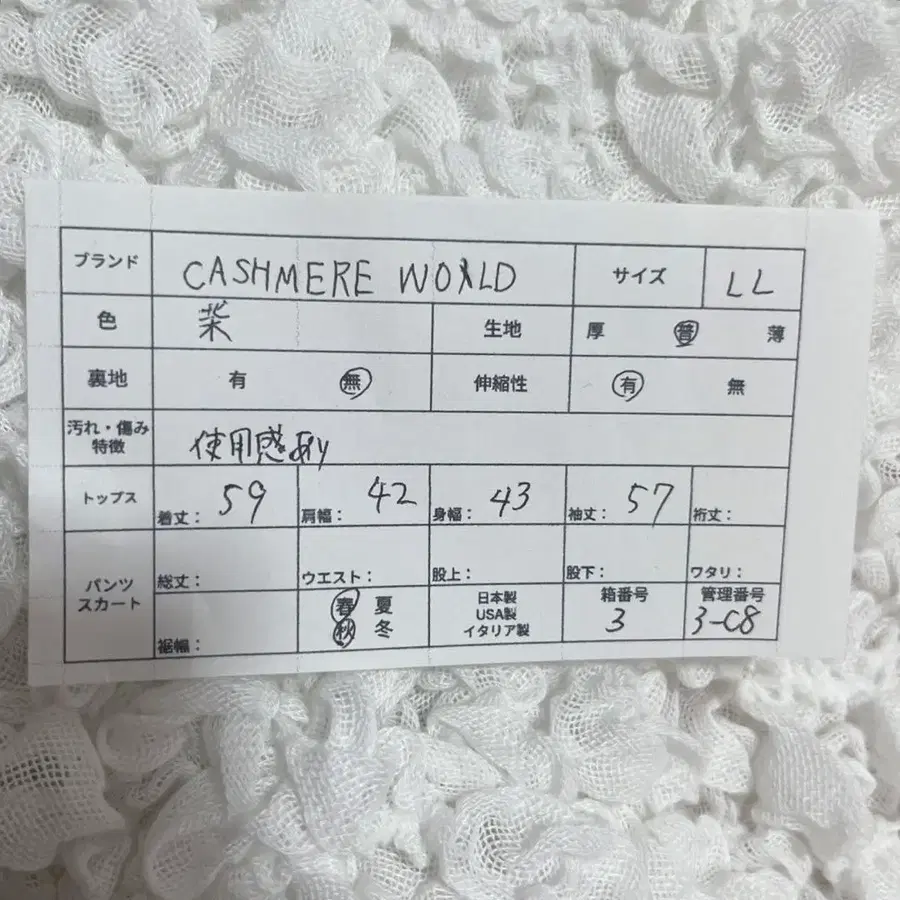 ブランド CASHMERE WORLD サイズ LL
色 生地 厚 普 薄
裏地 有 無 伸縮性 有 無
汚れ・傷み
特徴 使用感あり
トップス 着丈: 59 肩幅: 42 身幅: 43 袖丈: 57 裄丈:
パンツ
スカート
総丈: ウエスト: 股上: 股下: ワタリ:
裾幅:
春 夏
秋 冬
日本製
USA製
イタリア製
箱番号
3
管理番号
3-C8